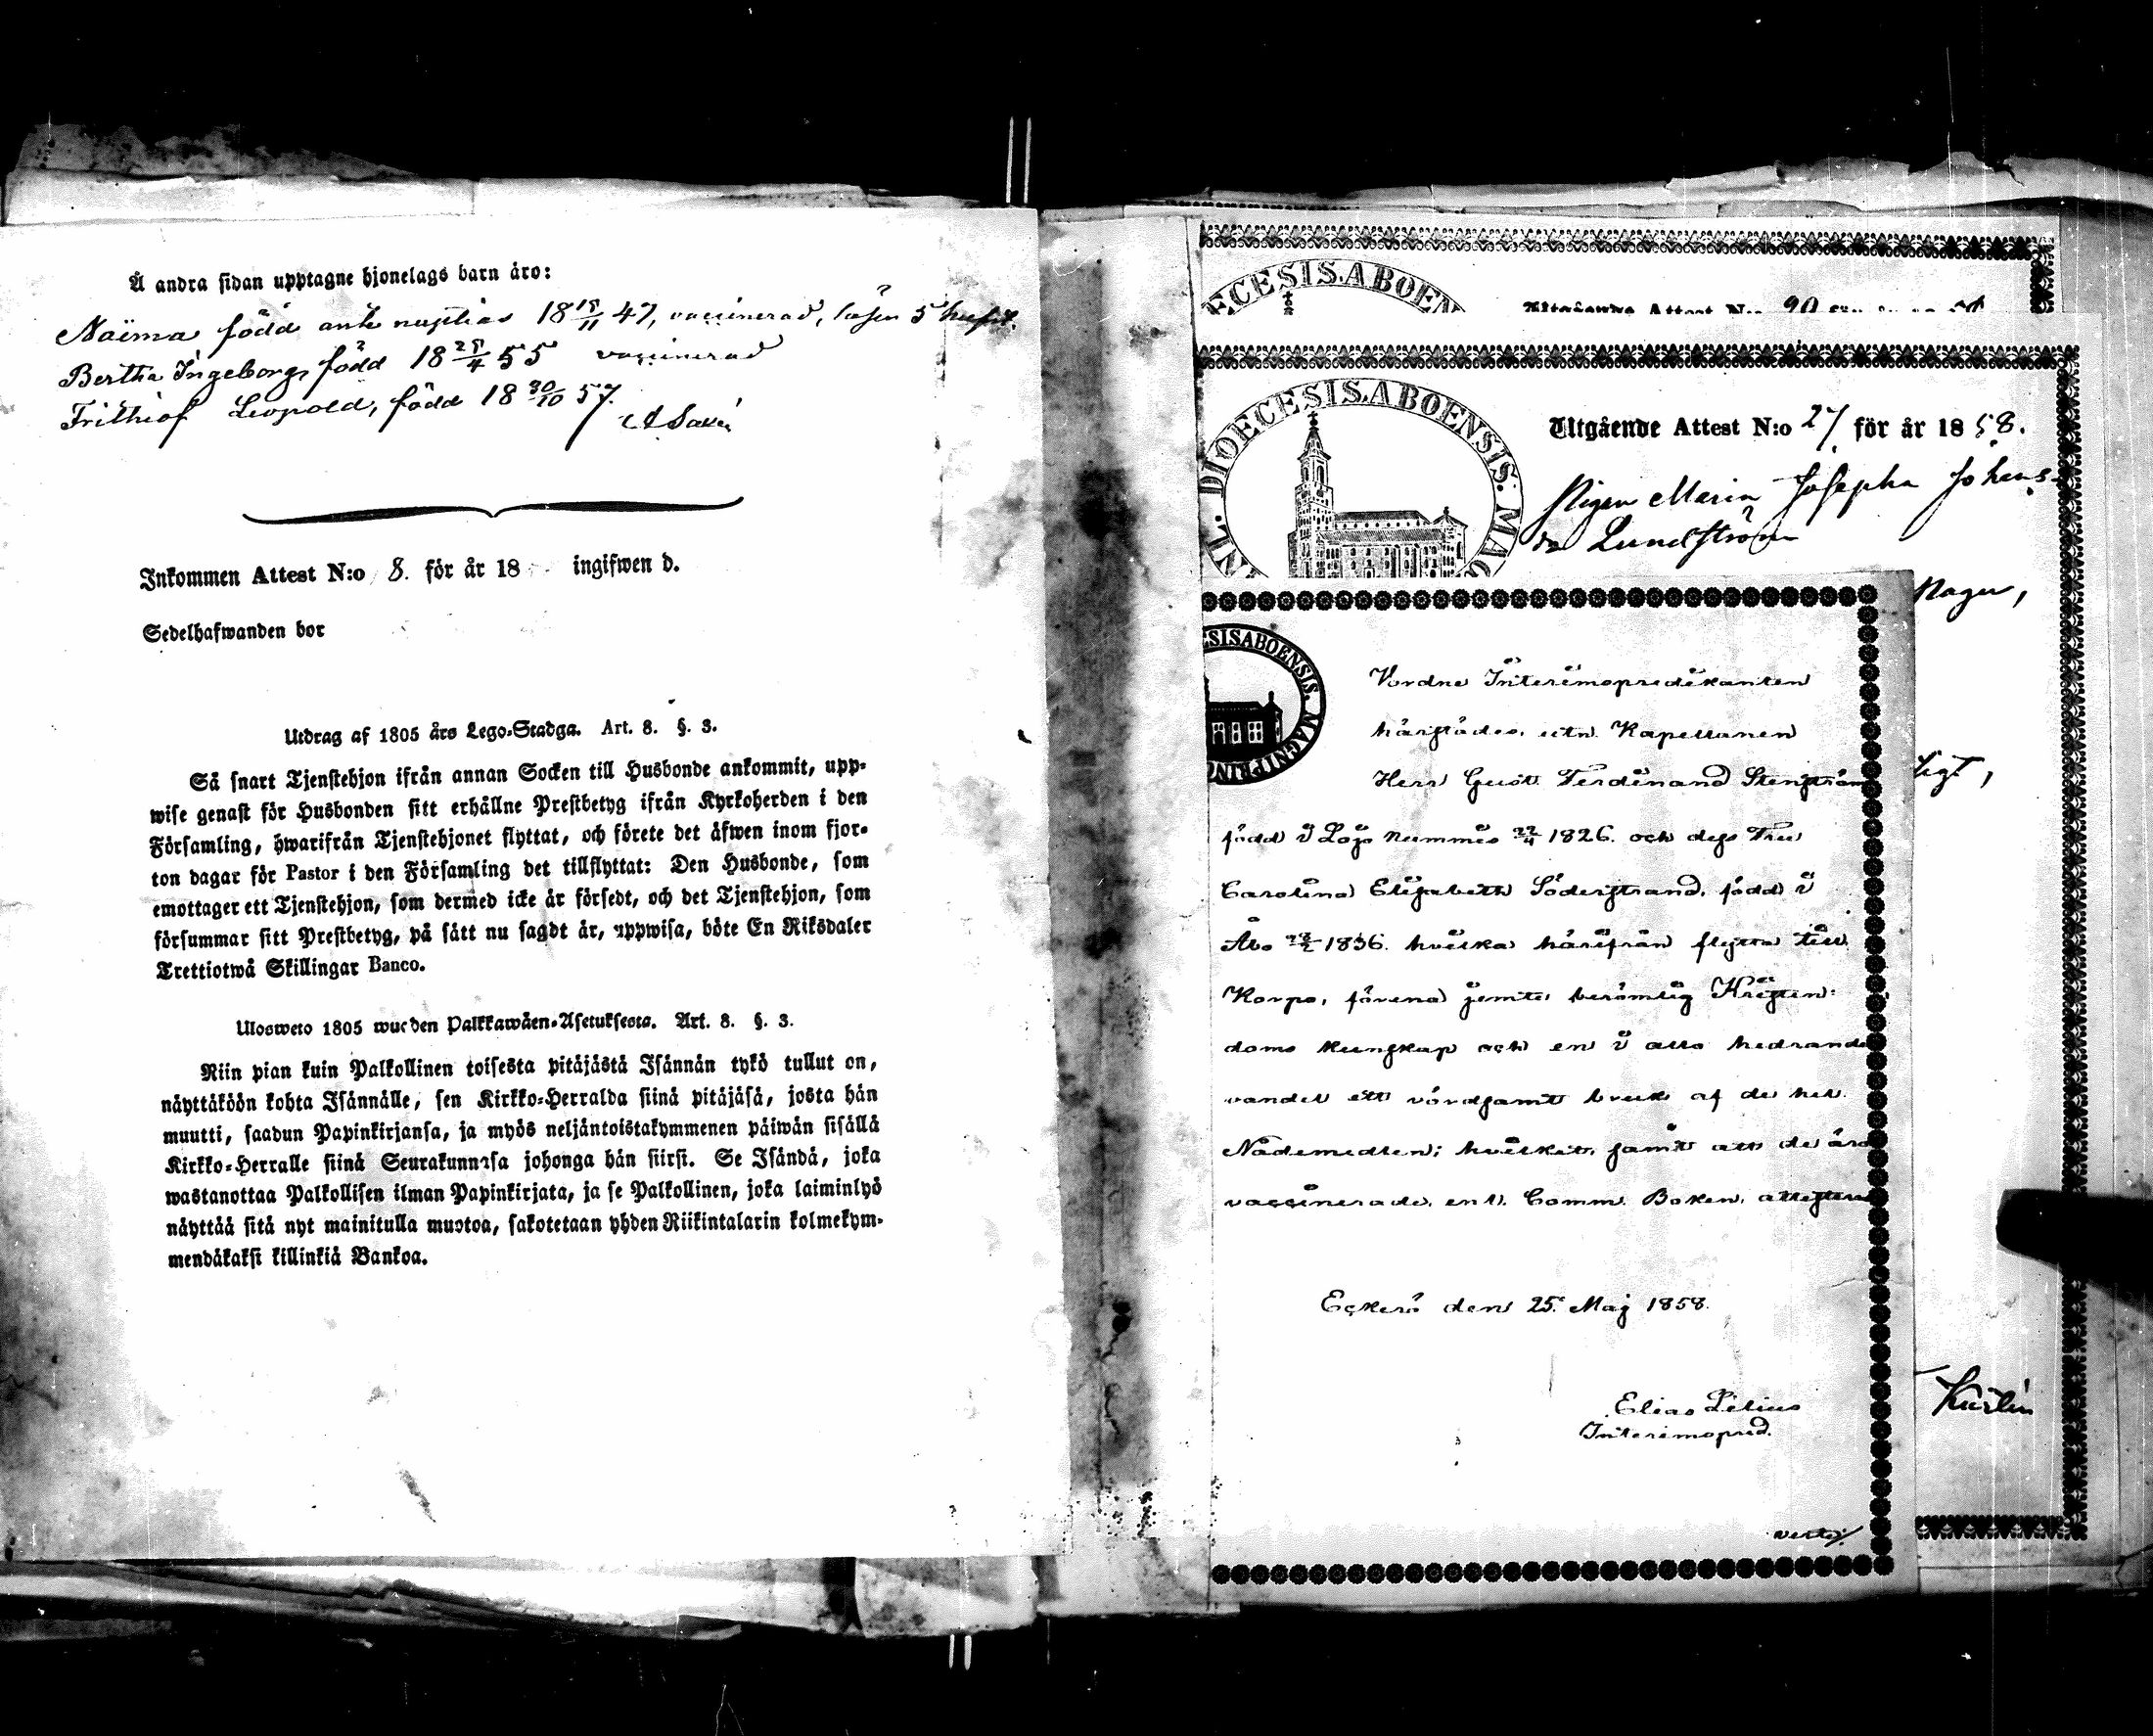 Å andra sidan upptagne hjonelags barn äro:
Naima född ante nuptias 18 15/11 47, vaccinerad, läser 5 hufst.
Bertha Ingeborg, född 18 25/4 55 vaccinerad
Frithiof Leopold, född 18 30/10 57.
Inkommen Attest N:o 8. för år 18 ingifwen d.
Sedelhafwanden bor
Utdrag af 1805 års Lego-Stadga. Art. 8. §. 3.
Så snart Tjenstehjon ifrån annan Socken till Husbonde ankommit, upp-
wise genast för Husbonden sitt erhållne Prestbetyg ifrån Kyrkoherden i den
Församling, hwarifrån Tjenstehjonet flyttat, och förete det äfwen inom fjor-
ton dagar för Pastor i den Församling det tillflyttat: Den Husbonde, som
emottager ett Tjenstehjon, som dermed icke är försedt, och det Tjenstehjon, som
försummar sitt Prestbetyg, på sätt nu sagdt är, uppwisa, böte En Riksdaler
Trettiotwå Skillingar Banco.
Ulosweto 1805 wuoden Palkkawäen-Asetuksesta. Art. 8. §. 3.
Niin pian kuin Palkollinen toisesta pitäjästä Isännän tykö tullut on,
näyttäköön kohta Isännälle, sen Kirkko-Herralda siinä pitäjäsä, josta hän
muutti, saadun Papinkirjansa, ja myös neljäntoistakymmenen päiwän sisällä
Kirkko-Herralle siinä Seurakunnasa johonga hän siirsi. Se Isändä, joka
wastanottaa Palkollisen ilman Papinkirjata, ja se Palkollinen, joka laiminlyö
näyttää sitä nyt mainitulla muotoa, sakotetaan yhden Riikintalarin kolmekym-
mendäkaksi killinkiä Bankoa.
ECESIS.ABOEN
Utgående Attest N:o 20 för år 18
DIOECESIS.ABOENSIS. MAG
Utgående Attest N:o 27 för år 1858.
Pigan Maria Josepha Johans-
dr Lundström
ESISABOENSIS. MAGNIPRINC
Vordne Interimspredikanten
härstädes, utn. Kapellanen
Herr Gust. Ferdinand Stenström
född i Lojo Nummis 22/4 1826. och dess Fru
Carolina Elisabeth Söderstrand, född i
Åbo 1836. hvilka härifrån flytta till
Korpo, förena jemte berömlig Kristen-
doms kunskap och en i allo hedrande
vandel ett vördsamt bruk af de hel.
Nådemedlen; hvilket, samt att de äro
vaccinerade, enl. Comm. Boken, attesterar
Eckerö den 25. Maj 1858.
Elias Lilius
Interimspred.
vertx/.